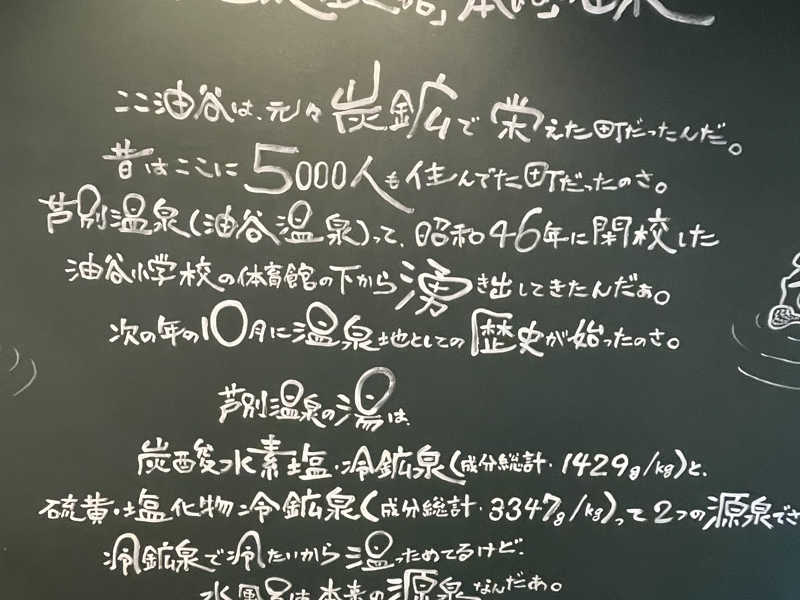 ここ油谷は、元々炭鉱で栄えた町だったんだ。
昔はここに5000人も住んでた町だったのさ。
芦別温泉(油谷温泉)って、昭和46年に閉校した
油谷小学校の体育館の下から湧き出してきたんだぁ。
次の年の10月に温泉地としての歴史が始ったのさ。
芦別温泉の湯は、
炭酸水素塩・冷鉱泉(成分総計・1429g/kg)と、
硫黄・塩化物冷鉱泉(成分総計・3347g/kg)って2つの源泉でさ
冷鉱泉で冷たいから温っためてるけど、
水風呂は本来の源泉なんだぁ。